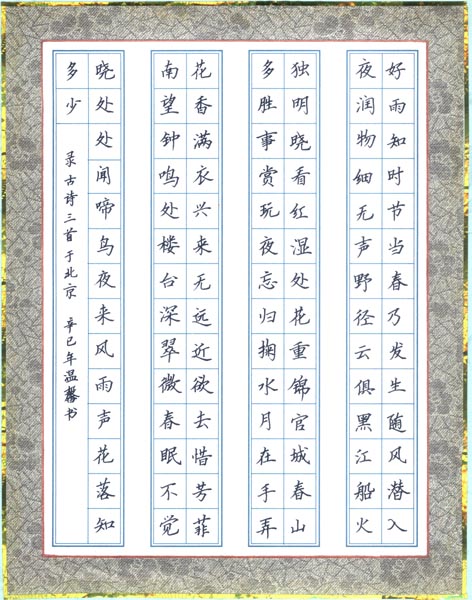 好雨知时节当春乃发生随风潜入
夜润物细无声野径云俱黑江船火
独明晓看红湿处花重锦官城春山
多胜事赏玩夜忘归掬水月在手弄
花香满衣兴来无远近欲去惜芳菲
南望钟鸣处楼台深翠微春眠不觉
晓处处闻啼鸟夜来风雨声花落知
多少 录古诗三首于北京 辛巳年温馨书